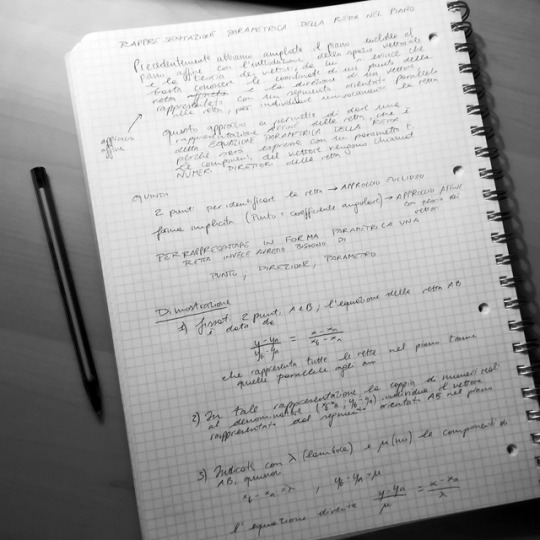 RAPPRESENTAZIONE PARAMETRICA DELLA RETTA NEL PIANO
Precedentemente abbiamo ampliato il piano euclideo al
piano affine con l'introduzione dello spazio vettoriale
e la teoria dei vettori, da cui si evince che
basta conoscere le coordinate di un punto della
retta e la direzione di un vettore
rappresentato con un segmento orientato parallelo
alla retta, per individuare univocamente la retta
approccio
affine
questo approccio ci permette di dare una
rappresentazione AFFINE della retta che è
detta EQUAZIONE PARAMETRICA DELLA RETTA
perché sarà espressa con un parametro t
Le componenti del vettore vengono chiamati
NUMERI DIRETTORI della retta
QUINDI
2 punti per identificare la retta → APPROCCIO EUCLIDEO
forma implicita (punto + coefficiente angolare) → APPROCCIO AFFINE
con teoria dei
vettori
PER RAPPRESENTARE IN FORMA PARAMETRICA UNA
RETTA INVECE AVREMO BISOGNO DI
PUNTO, DIREZIONE, PARAMETRO
Dimostrazione
1) fissati 2 punti A e B, l'equazione della retta AB
è data da
y-yA / yB-yA = x-xA / xB-xA
che rappresenta tutte le rette nel piano tranne
quelle parallele agli assi
2) In tale rappresentazione, la coppia di numeri reali
al denominatore (xB-xA, yB-yA) individua il vettore
rappresentato dal segmento orientato AB nel piano
3) Indicate con λ (lambda) e μ (mu) le componenti di
AB, quindi
xB-xA=λ , yB-yA=μ
l'equazione diventa y-yA / μ = x-xA / λ